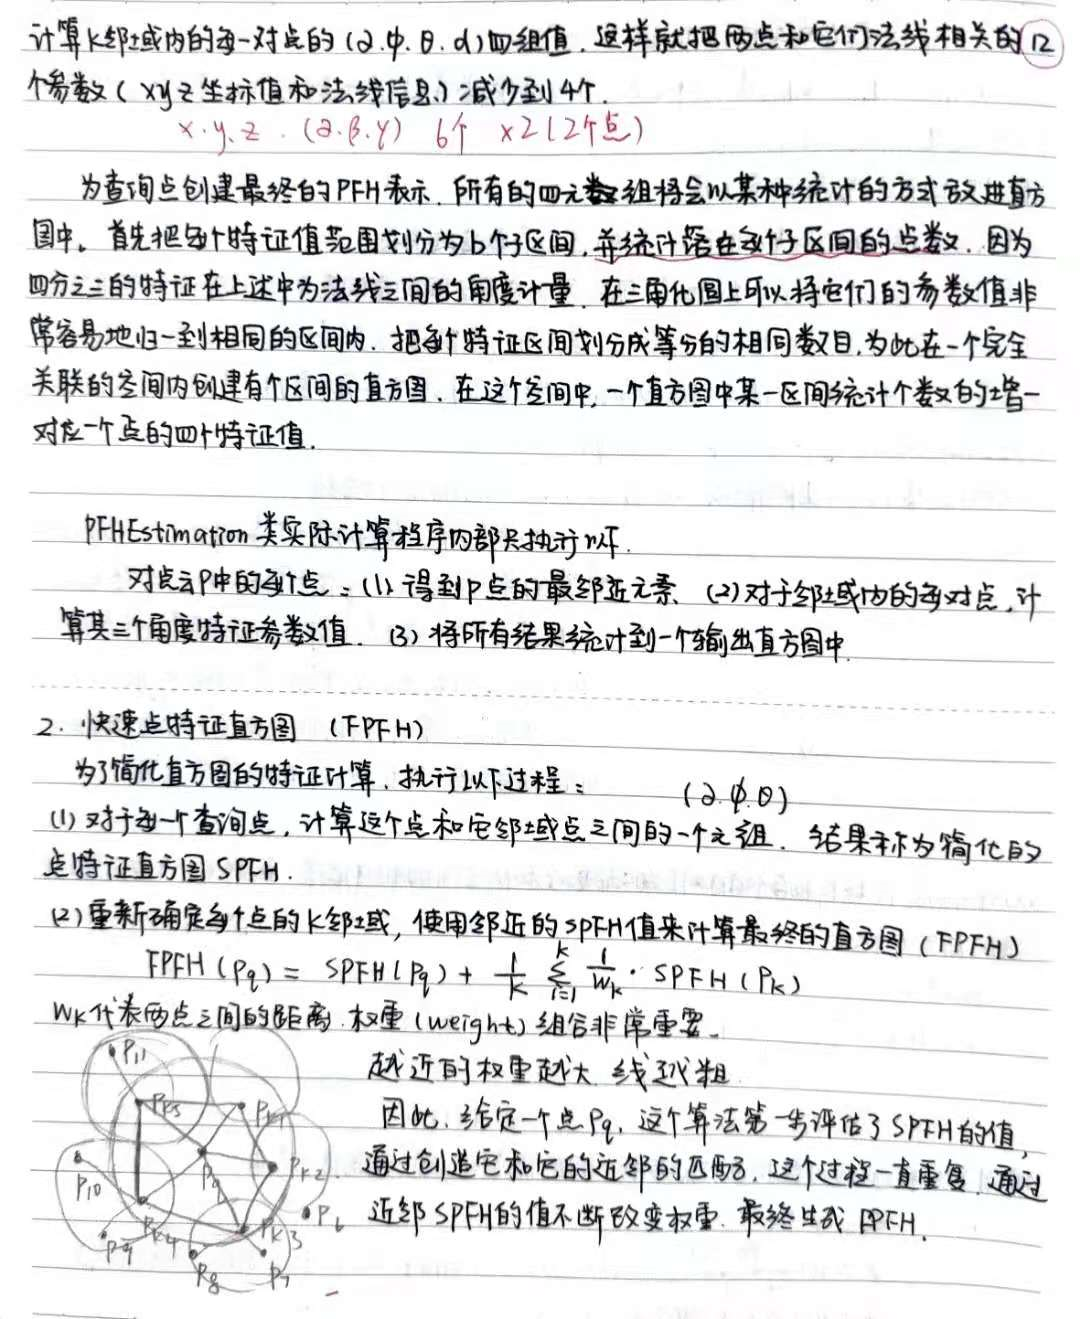 计算K邻域内的每一对点的(α.φ.θ.d)四组值，这样就把两点和它们法线相关的12
个参数(xyz坐标值和法线信息)减少到4个.
x.y.z.(α.β.γ) 6个 ×2(2个点)
为查询点创建最终的PFH表示，所有的四元数组将会以某种统计的方式放进直方
图中。首先把每个特征值范围划分为b个子区间,并统计落在每个子区间的点数，因为
四分之三的特征在上述中为法线之间的角度计量，在三角化图上可以将它们的参数值非
常容易地归一到相同的区间内.把每个特征区间划分成等分的相同数目,为此在一个完全
关联的空间内创建有个区间的直方图，在这个空间中,一个直方图中某一区间统计个数的增一
对应一个点的四个特征值.
PFHEstimation 类实际计算程序内部只执行以下.
对点云P中的每个点：(1)得到P点的最邻近元素 (2)对于邻域内的每对点，计
算其三个角度特征参数值. (3)将所有结果统计到一个输出直方图中.
2.快速点特征直方图 (FPFH)
为了简化直方图的特征计算，执行以下过程：
(α.φ.θ)
(1)对于每一个查询点，计算这个点和它邻域点之间的一个元组. 结果称为简化的
点特征直方图SPFH.
(2)重新确定每个点的K邻域，使用邻近的SPFH值来计算最终的直方图(FPFH)
FPFH(Pq) = SPFH(Pq) + 1/k Σ_{i=1}^{k} 1/Wk · SPFH(Pk)
Wk代表两点之间的距离.权重(weight)组合非常重要.
越近的权重越大 线越粗
因此，给定一个点Pq，这个算法第一步评估了SPFH的值,
通过创造它和它的近邻的匹配对，这个过程一直重复，通过
近邻SPFH的值不断改变权重，最终生成FPFH.
P11
Pk5
Pk1
Pq
Pk2
P10
P6
Pk4
Pk3
P9
P8
P7